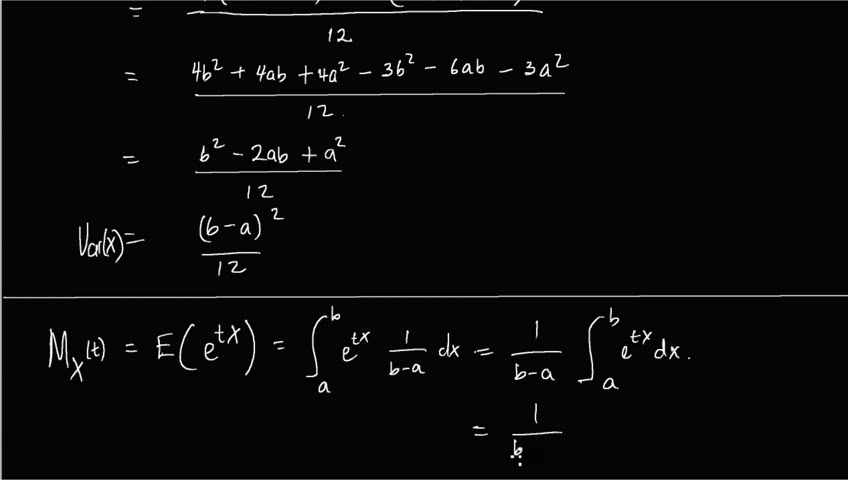 = 12
= 4b² + 4ab + 4a² - 3b² - 6ab - 3a² / 12.
= b² - 2ab + a² / 12
Var(x) = (b-a)² / 12
M_X(t) = E(e^{tX}) = ∫_a^b e^{tx} 1/(b-a) dx = 1/(b-a) ∫_a^b e^{tx} dx.
= 1/b